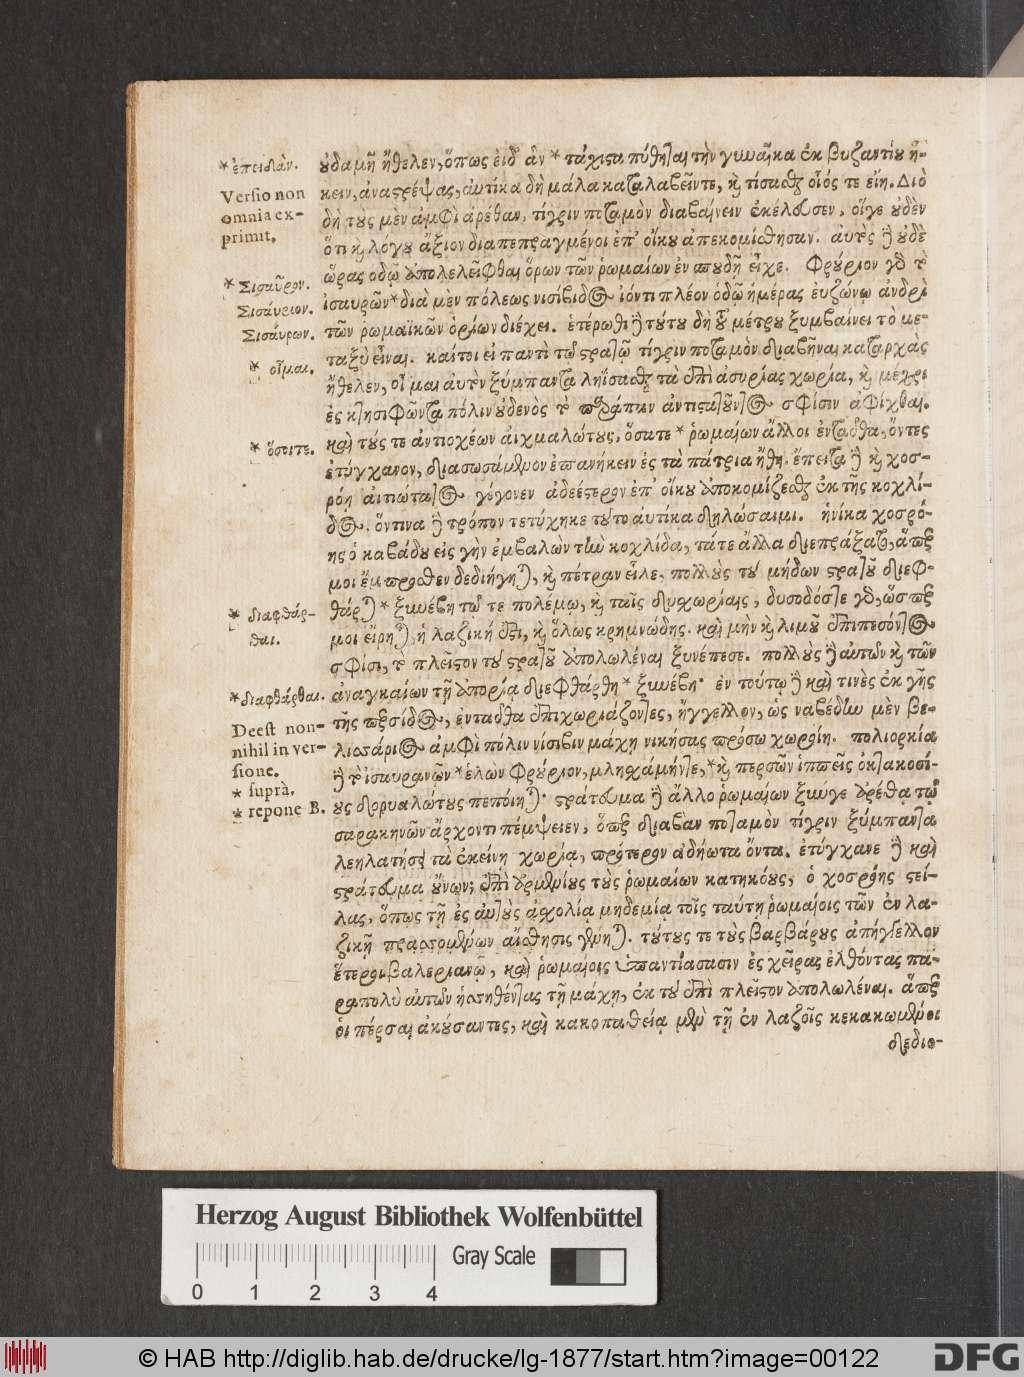 * ἐπειδὰν.
Versio non
omnia ex-
primit.
* Σισαῦρον.
Σισάυριον.
Σισάυρων.
* οἶμαι.
* ὅσοιτε.
* διαφθάρ-
θαι.
* διαφθάρθαι.
Deest non-
nihil in ver-
sione.
* suprà.
* repone B.
οὐδαμῆ ἤθελεν, ὅπως ἐιδ' ἂν * τάχιστα πύθηται τὴν γυναῖκα ἐκ βυζαντίου ἥ-
κειν, ἀναστρέψας, ἀυτίκα δὴ μάλα καταλαβεῖν τε, καὶ τίσασθαι οἷός τε εἴη. Διὸ
δὴ τοὺς μὲν ἀμφὶ ἀρέθαν, τίγριν ποταμὸν διαβαίνειν ἐκέλευσεν, οἵγε οὐδὲν
ὅτι καὶ λόγου ἄξιον διαπεπραγμένοι ἐπ' οἴκου ἀπεκομίσθησαν. ἀυτὸς δὲ οὐδὲ
ὥρας ὁδῷ ἀπολελεῖφθαι ὅρων τῶν ῥωμαίων ἐν σπουδῇ εἶχε. Φρούριον γὰρ τὸ
ἰσαυρῶν * διὰ μὲν πόλεως νισίβιδος ἰόντι πλέον ὁδῷ ἡμέρας ἐυζώνῳ ἀνδρὶ
τῶν ῥωμαϊκῶν ὁρίων διέχει. ἑτέρωθι δὲ τούτου δὴ τοῦ μέτρου ξυμβαίνει τὸ με-
ταξὺ εἶναι. καίτοι εἰ παντὶ τῷ στρατῷ τίγριν ποταμὸν διαβῆναι καταρχὰς
ἤθελεν, οἶμαι ἀυτὸν ξύμπαντα ληΐσασθαι τὰ ἐπὶ ἀσυρίας χωρία, καὶ μέχρι
ἐς κτησιφῶντα πόλιν οὐδενὸς τὸ παράπαν ἀντιστατοῦντος σφίσιν ἀφίχθαι.
καὶ τούς τε ἀντιοχέων αἰχμαλώτους, ὅσατε * ῥωμαίων ἄλλοι ἐνταῦθα, ὄντες
ἐτύγχανον, διασωσάμενον ἐπανήκειν ἐς τὰ πάτρια ἤθη. ἔπειτα δὲ καὶ χοσ-
ρόῃ αἰτιώτατος γέγονεν ἀδεέστερον ἐπ' οἴκου ἀποκομίζεσθαι ἐκ τῆς κοχλί-
δος. ὅντινα δὲ τρόπον τετύχηκε τοῦτο ἀυτίκα δηλώσαιμι. ἡνίκα χοσρό-
ης ὁ καβάδου εἰς γὴν ἐμβαλὼν τὴν κοχλίδα, τάτε ἄλλα διεπράξατο, ἅπερ
μοι ἔμπροσθεν δεδιήγηται, καὶ πέτραν εἷλε, πολλοὺς τοῦ μήδων στρατοῦ διεφ-
θάρται * ξυνέβη τῷ τε πολέμῳ, καὶ ταῖς δυσχωρίαις, δυσοδός τε γὰρ, ὥσπερ
μοι εἴρηται, ἡ λαζική ἐστι, καὶ ὅλως κρημνώδης. καὶ μὴν καὶ λιμοῦ ἐπιπεσόντος
σφίσι, τὸ πλεῖστον τοῦ στρατοῦ ἀπολωλέναι ξυνέπεσε. πολλοὺς δὲ ἀυτῶν καὶ τῶν
ἀναγκαίων τῇ ἀπορίᾳ διεφθάρθη * ξυνέβη· ἐν τούτῳ δὲ καὶ τινὲς ἐκ γῆς
τῆς περσίδος, ἐνταῦθα ἐπιχωριάζοντες, ἤγγελλον, ὡς ναβέδην μὲν βε-
λισάριος ἀμφὶ πόλιν νίσιβιν μάχῃ νικήσας πρόσω χωροίη. πολιορκίᾳ
δὲ τὸ ἰσαυρανῶν * ἑλὼν φρούριον, βλησχάμην τε, * καὶ περσῶν ἱππεῖς ὀκτακοσί-
ους δορυαλώτους πεποίηται· στράτευμα δὲ ἄλλο ῥωμαίων ξύν γε ἀρέθᾳ τῷ
σαρακηνῶν ἄρχοντι πέμψειεν, ὅπερ διαβὰν ποταμὸν τίγριν ξύμπαντα
λεηλατήσει τὰ ἐκείνῃ χωρία, πρότερον ἀδήωτα ὄντα. ἐτύγχανε δὲ καὶ
στράτευμα οὔνων, ἐπὶ ἀρμενίους τοὺς ῥωμαίων κατηκόους, ὁ χοσρόης στεί-
λας, ὅπως τῇ ἐς αὐτοὺς ἀσχολίᾳ μηδεμία τοῖς ταύτῃ ῥωμαίοις τῶν ἐν λα-
ζικῇ πρασσομένων αἴσθησις γένηται. τούτους τε τοὺς βαρβάρους ἀπήγγελλον
ἕτεροι βαλεριανῷ, καὶ ῥωμαίοις ὑπαντιάσασιν ἐς χεῖρας ἐλθόντας πα-
ραπολὺ αὐτῶν ἡσσηθέντας τῇ μάχῃ, ἐκ τοῦ ἐπὶ πλεῖστον ἀπολωλέναι. ἅπερ
οἱ πέρσαι ἀκούσαντες, καὶ κακοπαθείᾳ μὲν τῇ ἐν λαζοῖς κεκακωμένοι
δεδιο-
Herzog August Bibliothek Wolfenbüttel
Gray Scale
0 1 2 3 4
© HAB http://diglib.hab.de/drucke/lg-1877/start.htm?image=00122
DFG